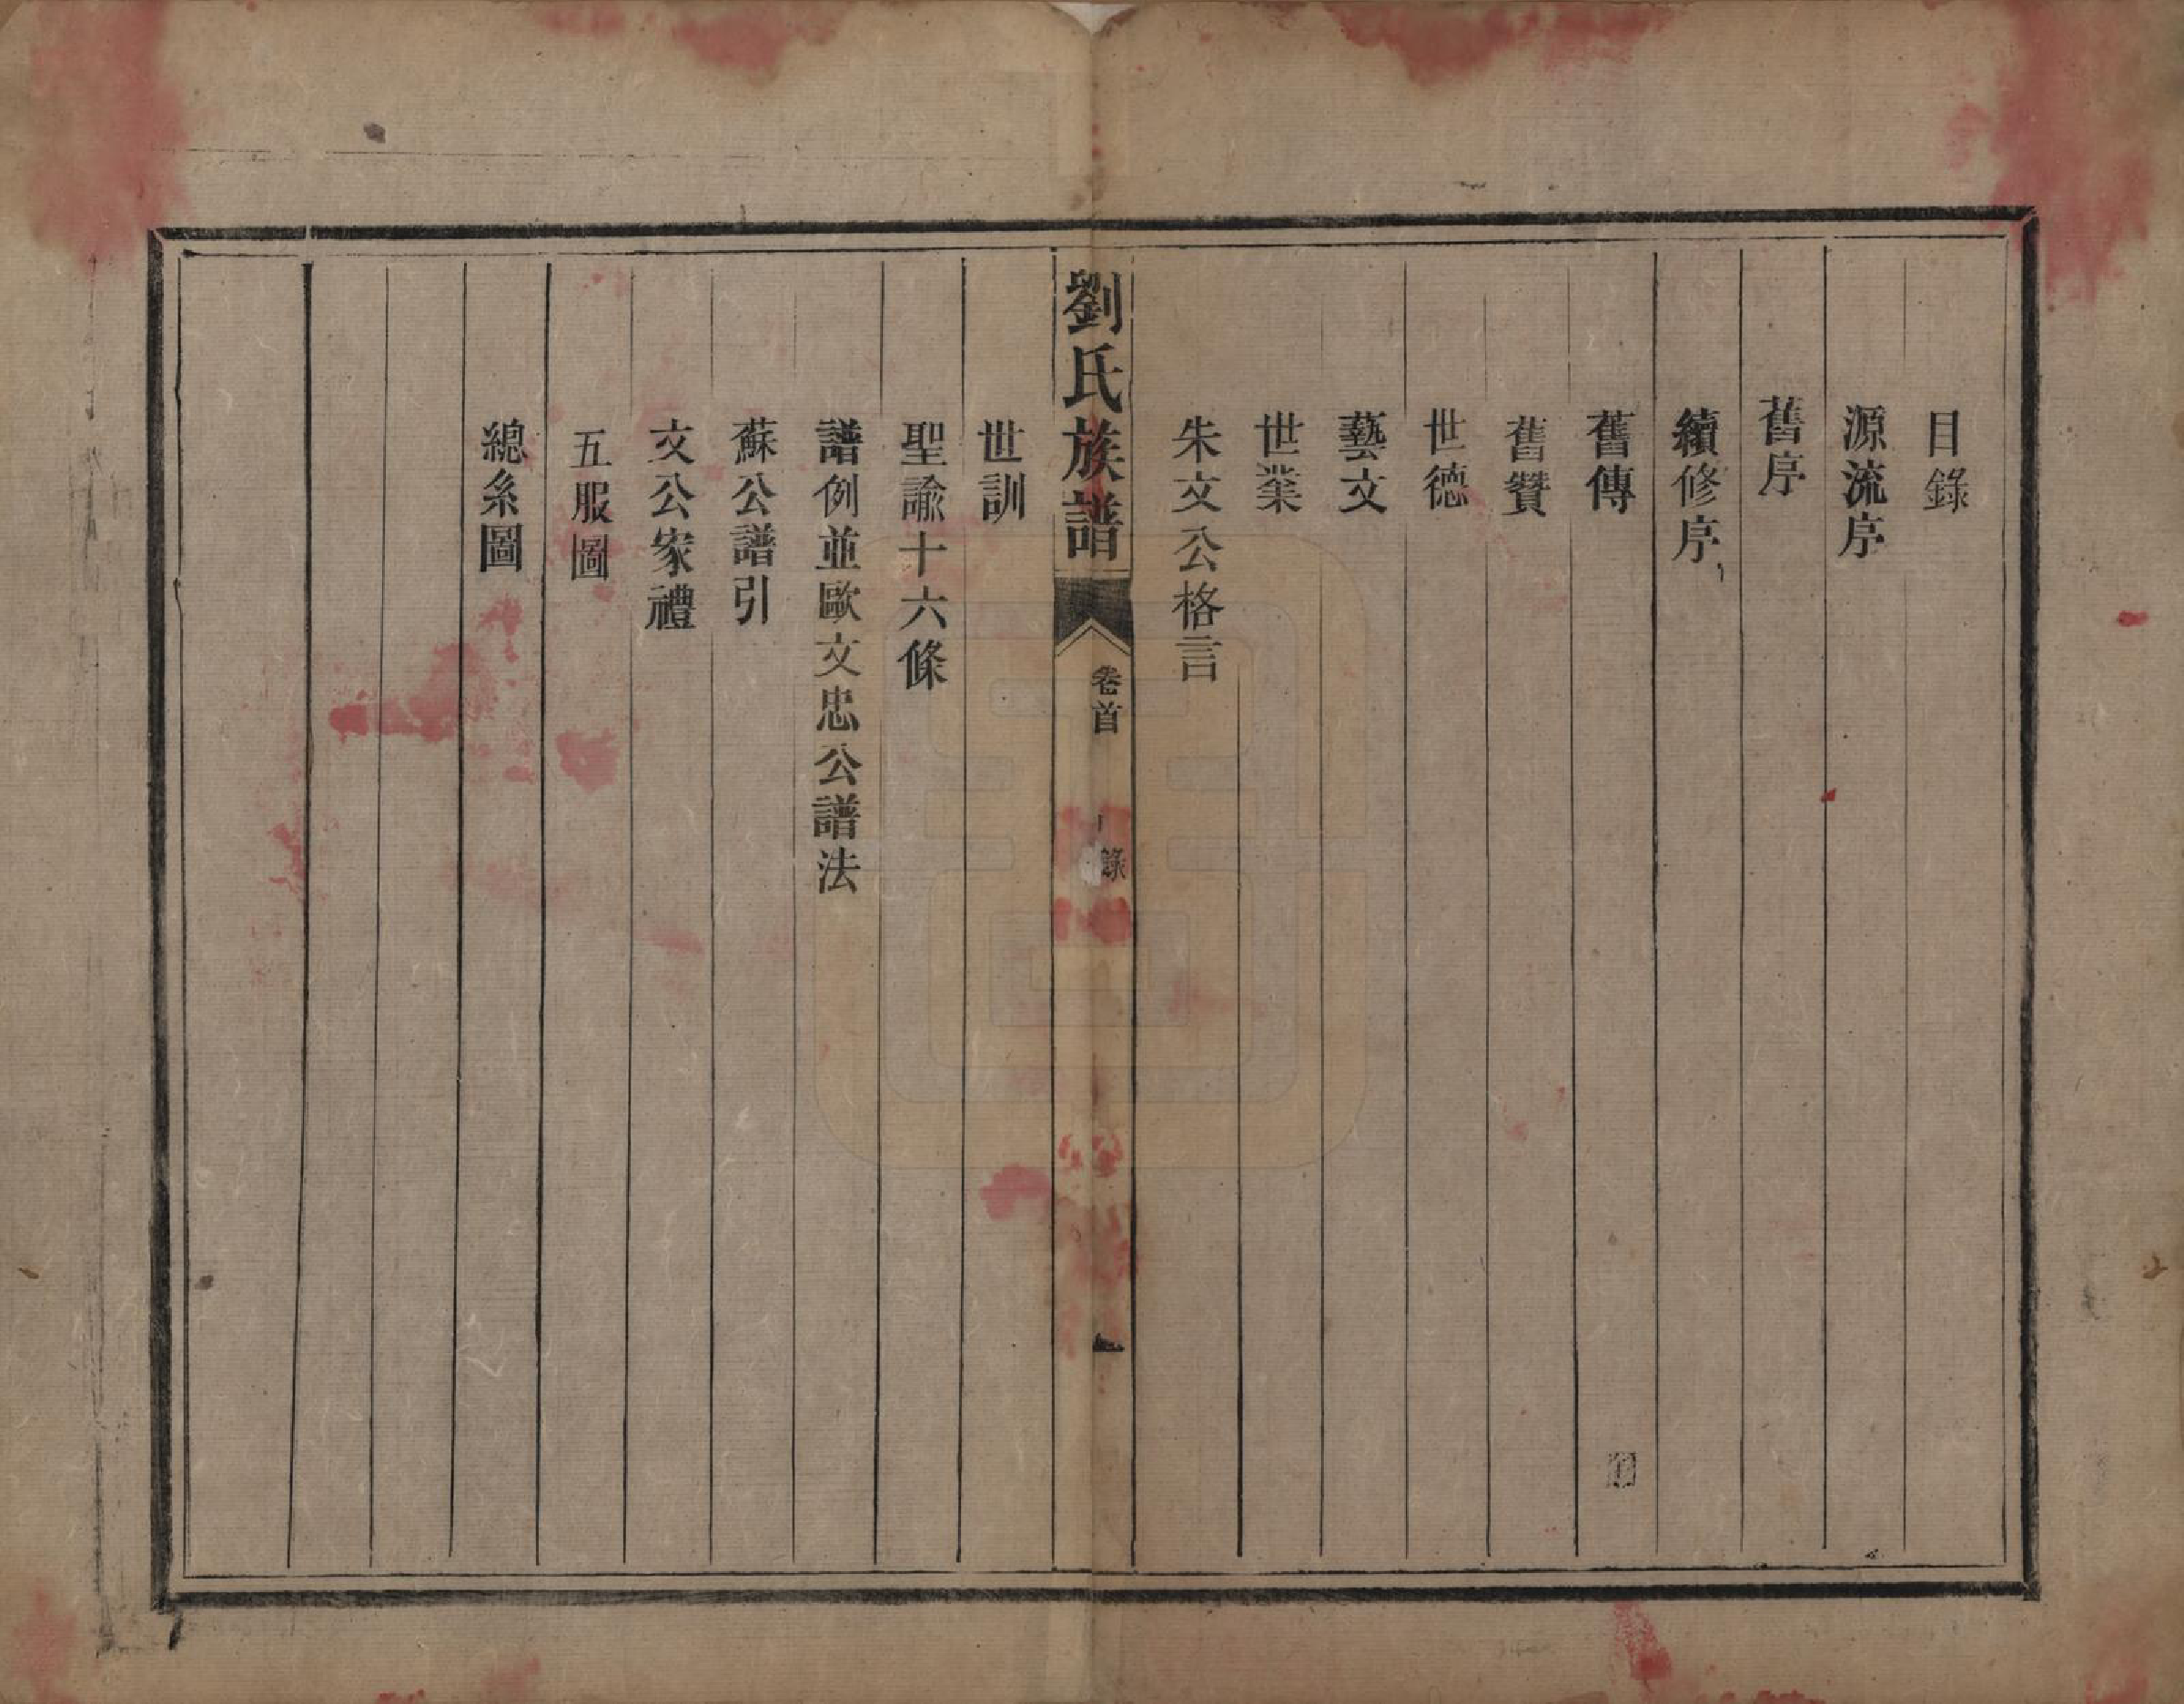 目錄
源流序
舊序
續修序
舊傳
舊贊
世德
藝文
世業
朱文公格言
劉氏族譜
卷首
錄
一
世訓
聖諭十六條
譜例並歐文忠公譜法
蘇公譜引
文公家禮
五服圖
總系圖